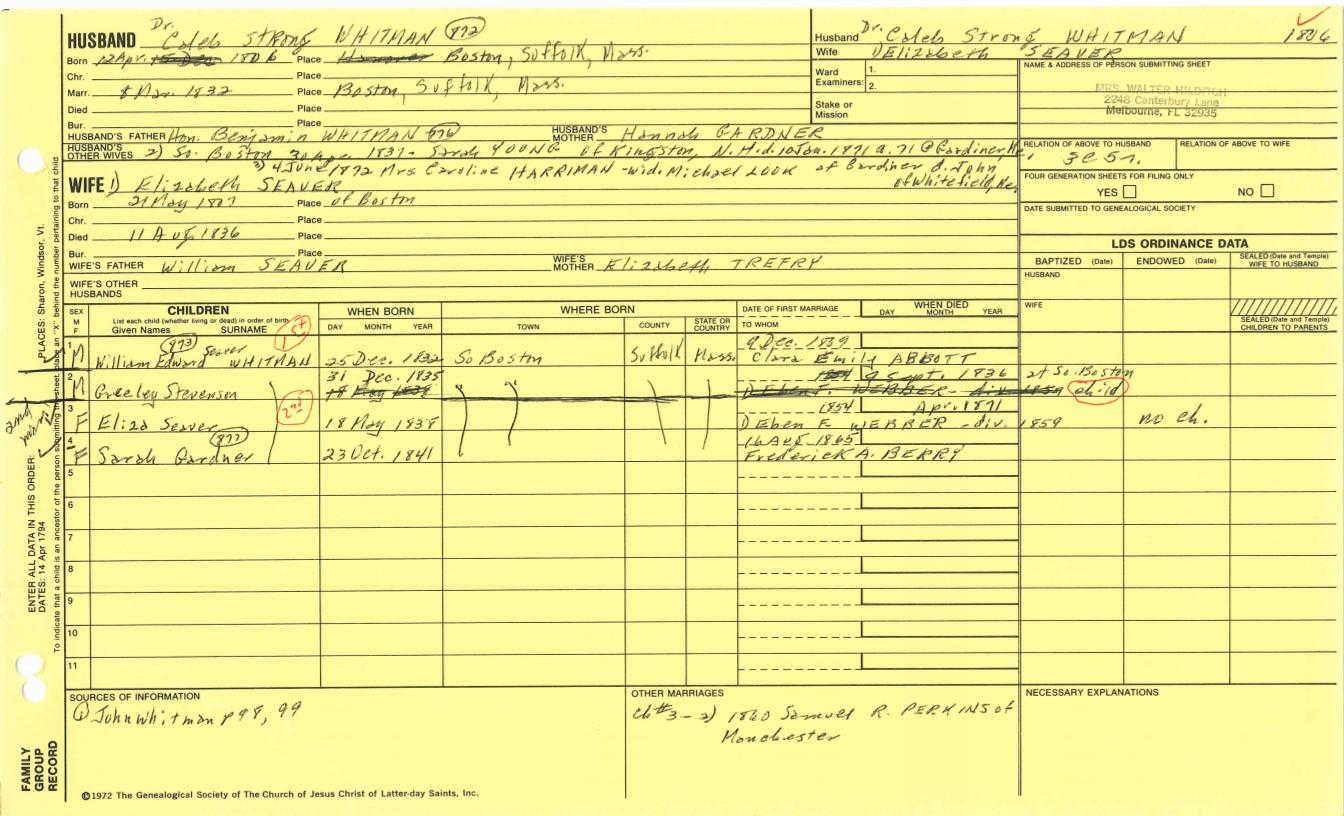 HUSBAND Dr. Caleb Strong WHITMAN 872
Born 12 Apr. 15 Dec 1806 Place Hanover Boston, Suffolk, Mass.
Chr. Place
Marr. 8 Mar. 1832 Place Boston, Suffolk, Mass.
Died Place
Bur. Place
HUSBAND'S FATHER Hon. Benjamin WHITMAN 876 HUSBAND'S MOTHER Hannah GARDNER
HUSBAND'S OTHER WIVES 2) So. Boston 30 Apr 1837 - Sarah YOUNG of Kingston, N.H. d. 10 Jan. 1871 a. 71 @ Gardiner, Me.
3) 4 June 1872 Mrs Caroline HARRIMAN - wid. Michael LOOK of Gardiner d. John of Whitefield, Me.
WIFE 1) Elizabeth SEAVER
Born 21 May 1807 Place of Boston
Chr. Place
Died 11 Aug. 1836 Place
Bur. Place
WIFE'S FATHER William SEAVER WIFE'S MOTHER Elizabeth TREFRY
WIFE'S OTHER HUSBANDS
Husband Dr. Caleb Strong WHITMAN 1806
Wife Elizabeth SEAVER
Ward Examiners: 1.
2.
Stake or Mission
NAME & ADDRESS OF PERSON SUBMITTING SHEET
MRS. WALTER
2248 Canterbury Lane
Melbourne, FL 32935
RELATION OF ABOVE TO HUSBAND RELATION OF ABOVE TO WIFE
3C5r.
FOUR GENERATION SHEETS FOR FILING ONLY
YES NO
DATE SUBMITTED TO GENEALOGICAL SOCIETY
LDS ORDINANCE DATA
BAPTIZED (Date) ENDOWED (Date) SEALED (Date and Temple) WIFE TO HUSBAND
HUSBAND
WIFE
SEALED (Date and Temple) CHILDREN TO PARENTS
SEX M F
CHILDREN
List each child (whether living or dead) in order of birth
Given Names SURNAME
WHEN BORN
DAY MONTH YEAR
WHERE BORN
TOWN COUNTY STATE OR COUNTRY
DATE OF FIRST MARRIAGE
TO WHOM
WHEN DIED
DAY MONTH YEAR
1st
1 M 873 William Edward Seaver WHITMAN 25 Dec. 1832 So Boston Suffolk Mass. 9 Dec. 1839
Clara Emily ABBOTT
2 M Greeley Stevenson 31 Dec. 1835 18 May 1838 1854 9 Sept. 1836 at So. Boston
D Eben F. WEBBER - div. 1859 child
2nd
3 F Eliza Seaver 18 May 1838 1854 Apr. 1871
D Eben F. WEBBER - div. 1859 no ch.
4 F 877 Sarah Gardner 23 Oct. 1841 16 Aug 1865
Frederick A. BERRY
5
6
7
8
9
10
11
SOURCES OF INFORMATION
① John Whitman p 98, 99
OTHER MARRIAGES
Ch #3 - 2) 1860 Samuel R. PERKINS of
Manchester
NECESSARY EXPLANATIONS
©1972 The Genealogical Society of The Church of Jesus Christ of Latter-day Saints, Inc.
FAMILY GROUP RECORD
ENTER ALL DATA IN THIS ORDER:
DATES: 14 Apr 1794
PLACES: Sharon, Windsor, Vt.
To indicate that a child is an ancestor of the person submitting the sheet, place an "X" behind the number pertaining to that child